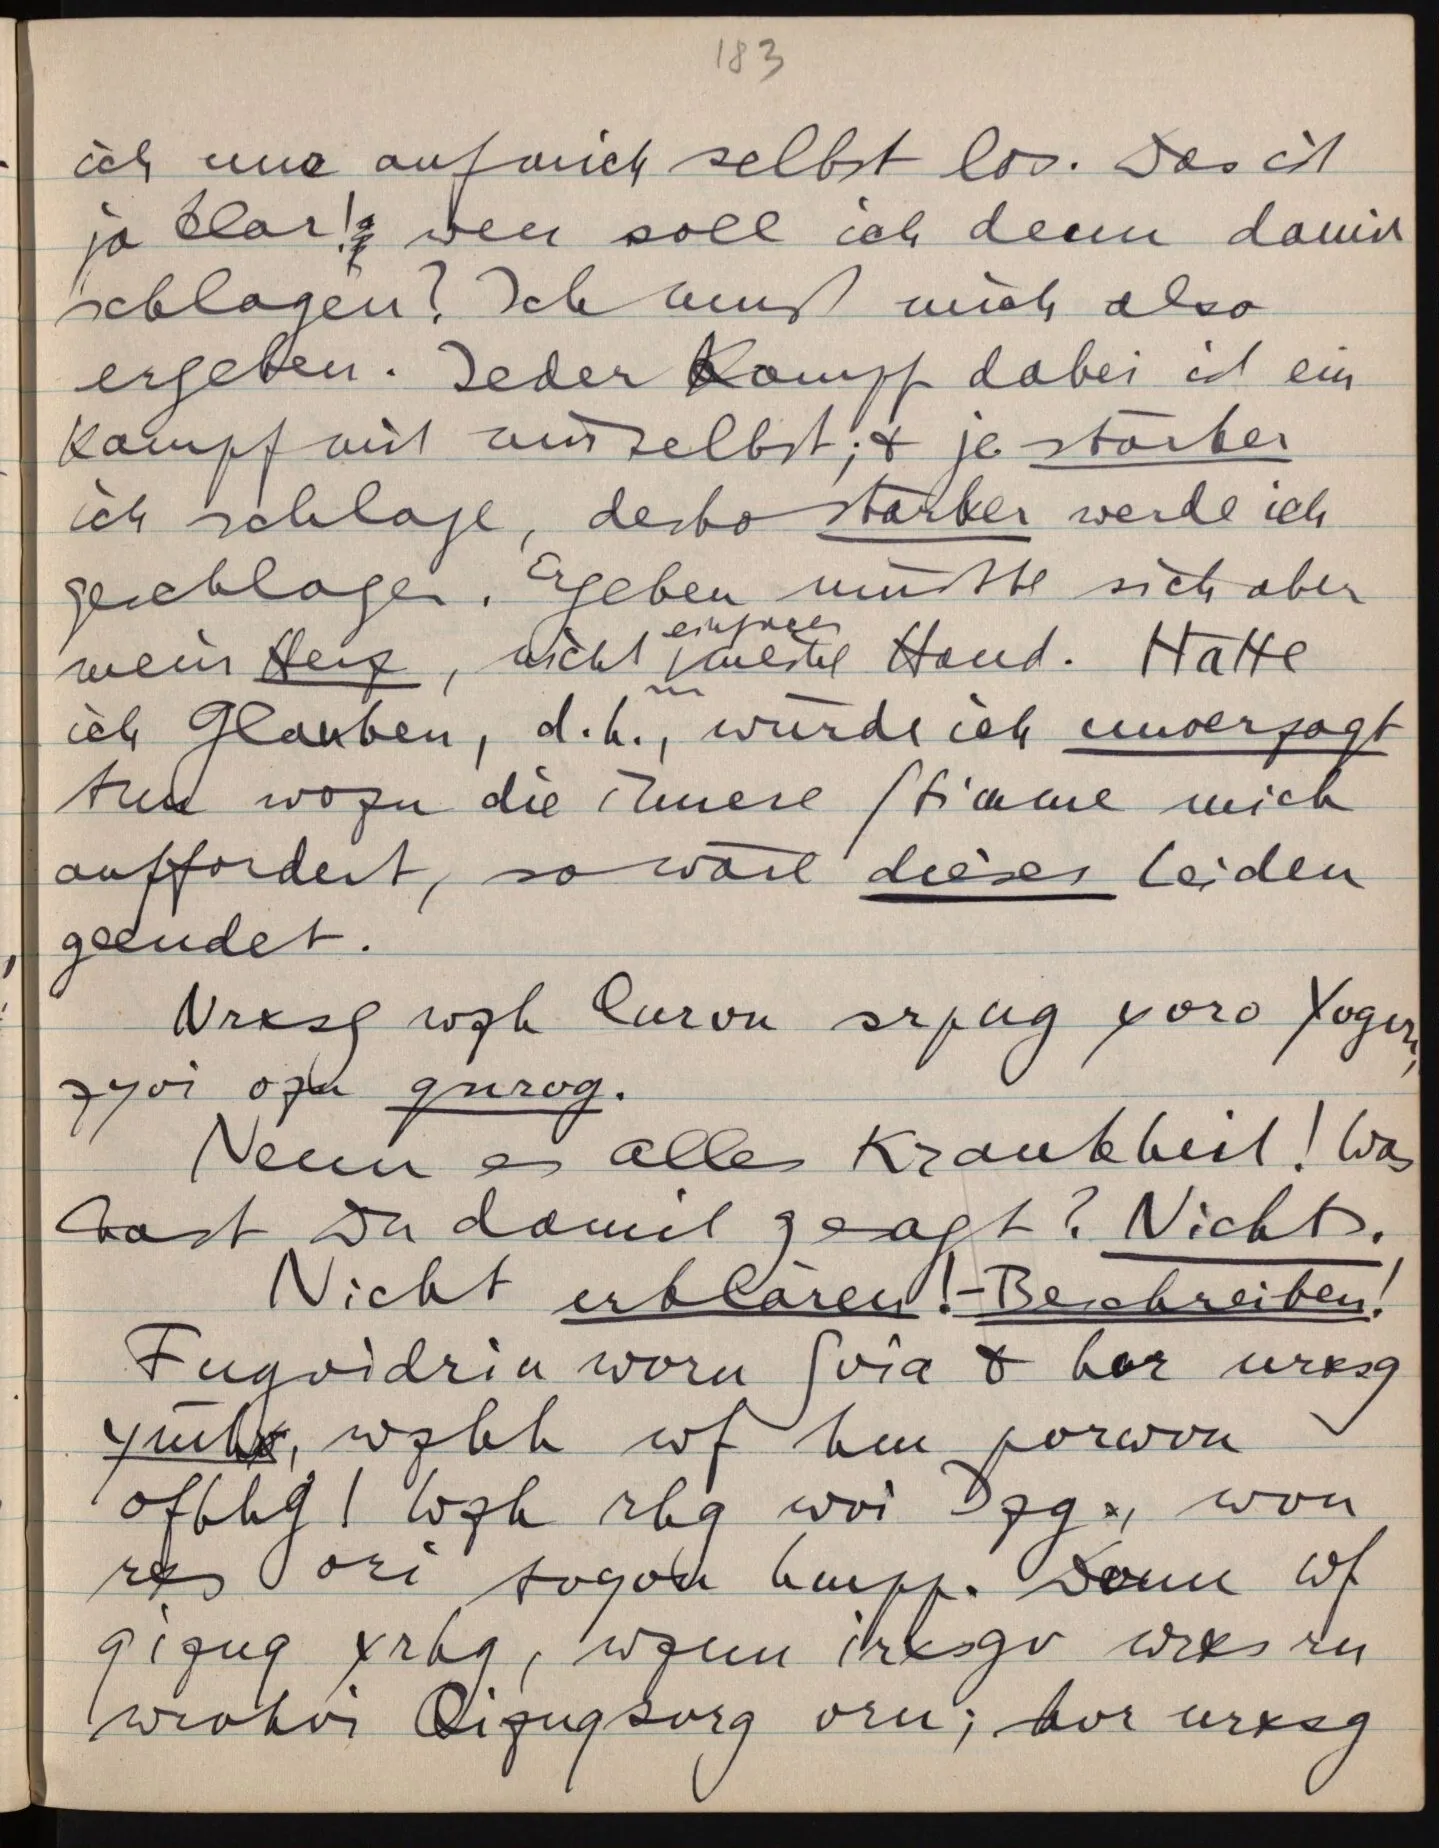 183
ich nur auf mich selbst los. Das ist
ja klar! wen soll ich denn damit
schlagen? Ich muß mich also
ergeben. Jeder Kampf dabei ist ein
Kampf mit mir selbst; & je stärker
ich schlage, desto stärker werde ich
geschlagen. Ergeben müßte sich aber
mein Herz, nicht einfach meine Hand. Hätte
ich Glauben, d.h., würde ich unverzagt
tun wozu die innere Stimme mich
auffordert, so wäre dieses Leiden
geendet.
Nrxsg wzh Qnrvn srpug yvro Yvgvn,
zyvi ozn qnrvg.
Nenn es alles Krankheit! Was
hast Du damit gesagt? Nichts.
Nicht erklären! – Beschreiben!
Fngvidriu wvrn Svia & hvr nrxsg
ymh, wzhh wf hm pvrwvn
ofhhg! Wzh rhg wvi Izg, wvn
rxs ori tvyvn hmpp. Wvnn wf
qiznq yrhg, wznn irxsgv wrxs rn
wrvhvi Qiznqsvrg vrn; hvr nrxsg